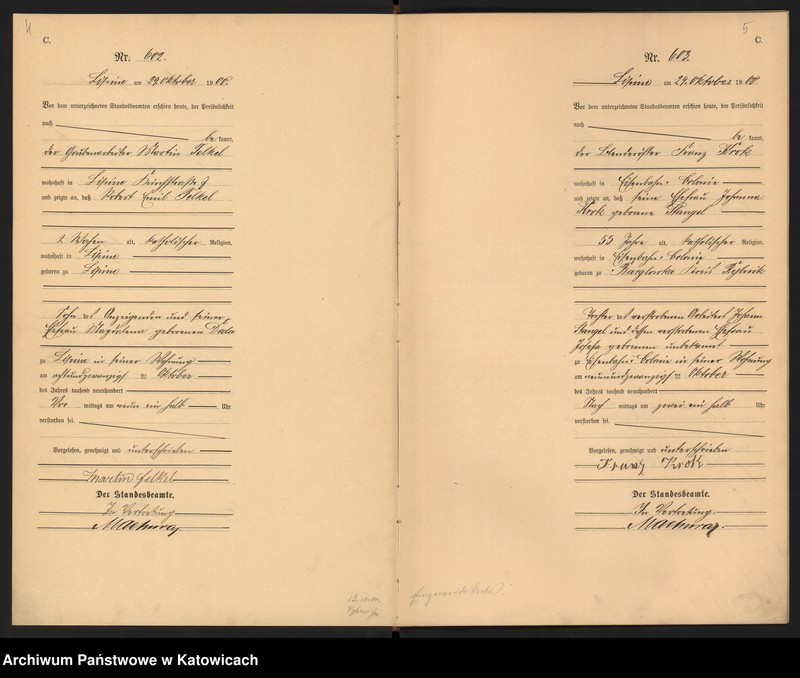 4
C.
Nr. 602.
Lipine am 29. Oktober 1900.
Vor dem unterzeichneten Standesbeamten erschien heute, der Persönlichkeit
nach
be kannt,
der Grubenarbeiter Martin Felkel
wohnhaft in Lipine Kirchstraße 9
und zeigte an, daß Robert Emil Felkel
2 Wochen alt, katholischer Religion,
wohnhaft in Lipine
geboren zu Lipine
Sohn des Anzeigenden und seiner
Ehefrau Magdalena geborenen
zu Lipine in seiner Wohnung
am achtundzwanzigsten Oktober
des Jahres tausend neunhundert
Vor mittags um neun ein halb Uhr
verstorben sei.
Vorgelesen, genehmigt und unterschrieben
Martin Felkel
Der Standesbeamte.
In Vertretung
5
C.
Nr. 603.
Lipine am 29. Oktober 1900.
Vor dem unterzeichneten Standesbeamten erschien heute, der Persönlichkeit
nach
be kannt,
der Franz Krok
wohnhaft in Eisenbahn: Colonie
und zeigte an, daß seine Ehefrau Johanna
Krok geborene Stangel
55 Jahre alt, katholischer Religion,
wohnhaft in Eisenbahn: Colonie
geboren zu Kreis Rybnik
Tochter des verstorbenen Arbeiters Johann
Stangel und dessen verstorbenen Ehefrau
Josefa geborenen unbekannt
zu Eisenbahn: Colonie in seiner Wohnung
am neunundzwanzigsten Oktober
des Jahres tausend neunhundert
Nach mittags um zwei ein halb Uhr
verstorben sei.
Vorgelesen, genehmigt und unterschrieben
Franz Krok
Der Standesbeamte.
In Vertretung.
Archiwum Państwowe w Katowicach